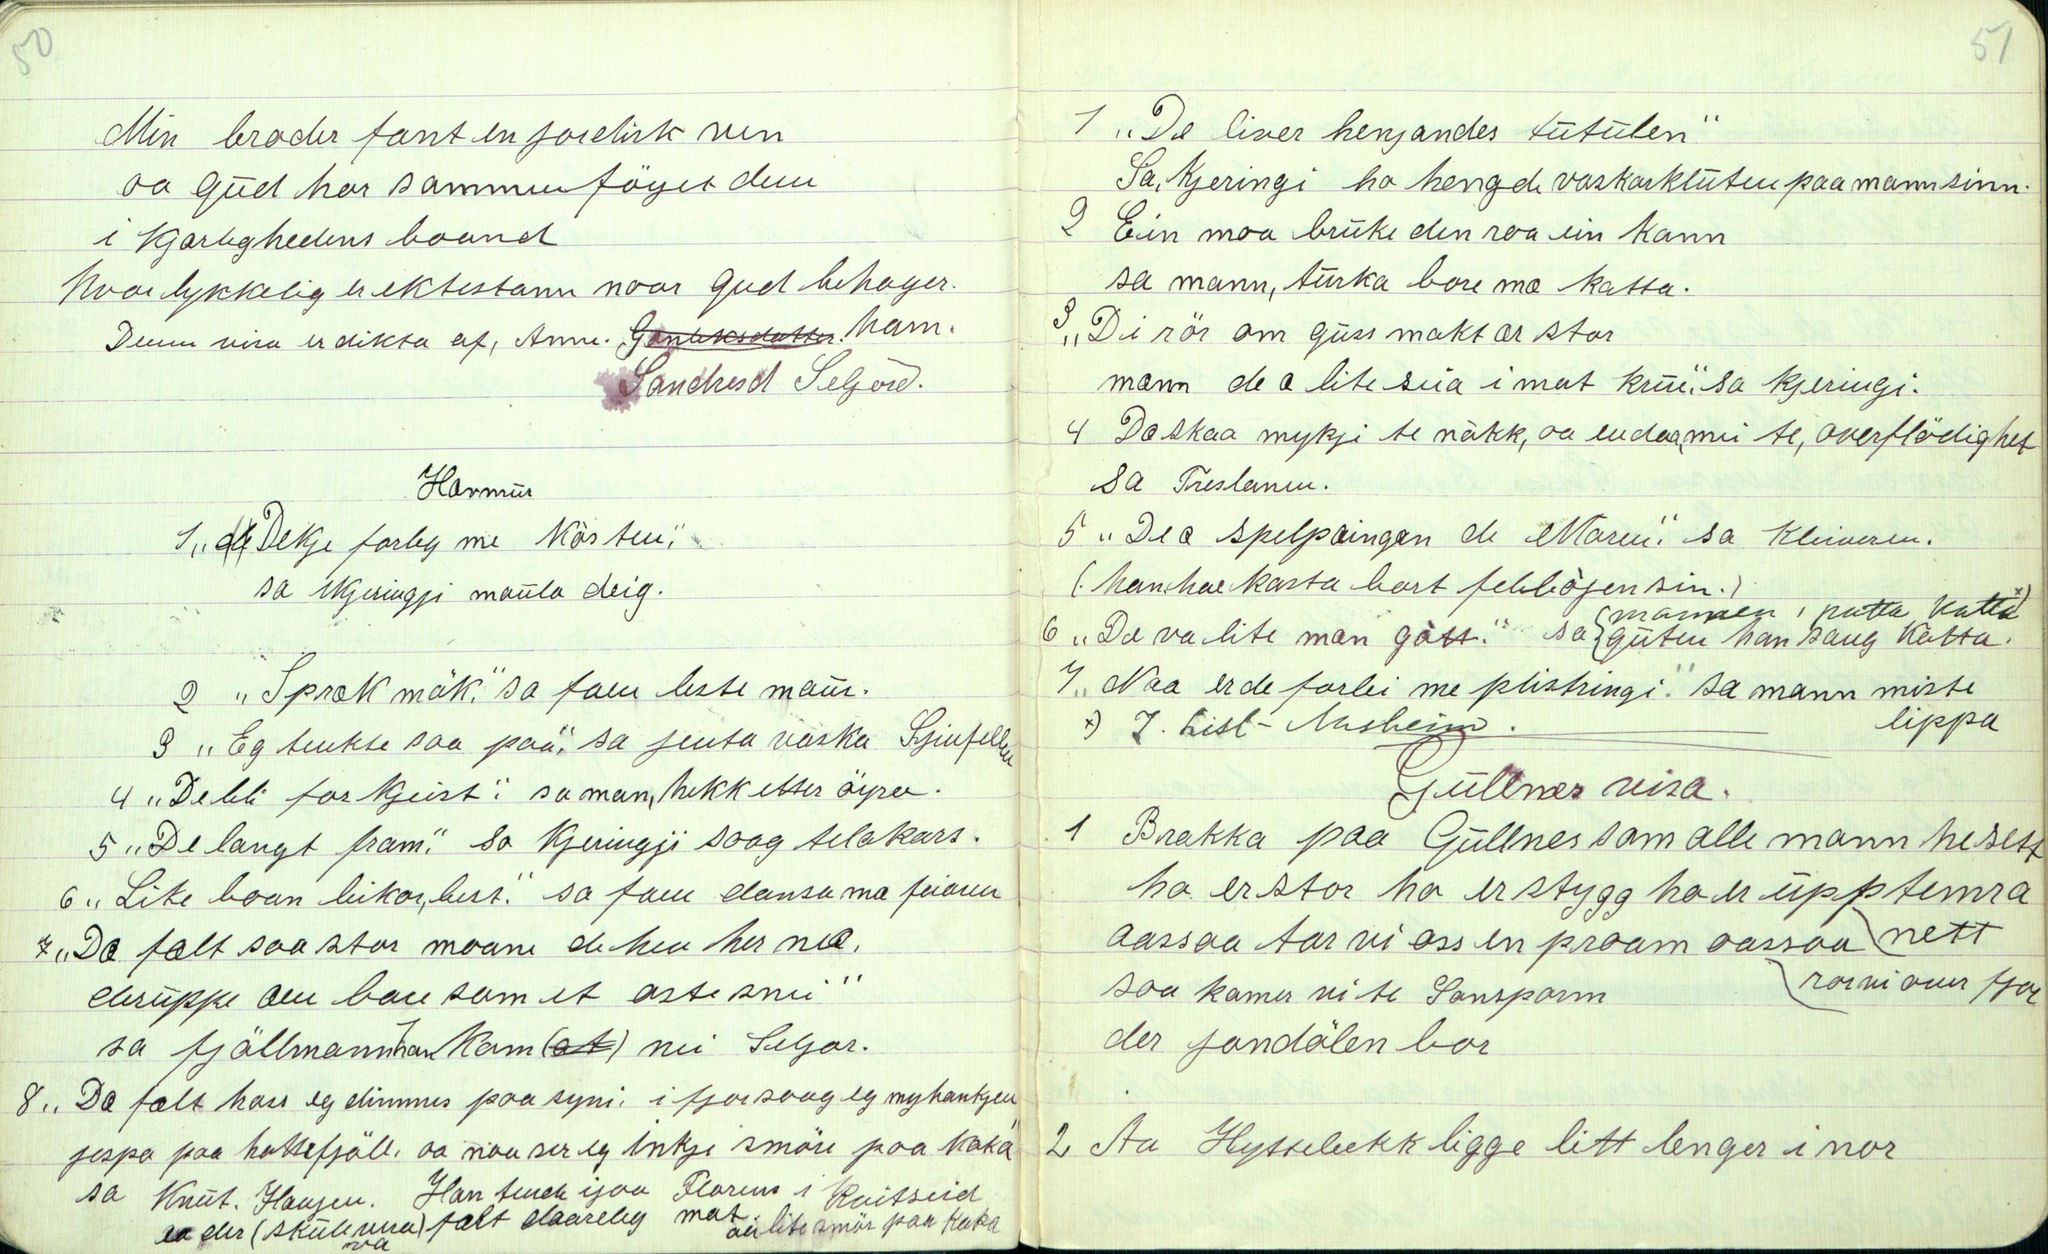 50
Min broder fant en jordisk ven
oa Gud har sammenföyet dem
i Kjærlighedens boand
hvor lykkelig er ektestann noar Gud behager.
Denne visa er dikta af, Anne. Gunleksdatter. ham.
Sandnesd Seljord.
Havmur
1 „de Dekje farleg me Kosten",
sa Kjeringji maula deig.
2 „Spræk mök", sa faen leste maur.
3 „Eg tenkte soa paa", sa jenta vaska Skinfellen
4 „De bli for Kjeist" sa man, hekk etter öyro.
5 „De langt fram" sa Kjeringji soag telakars.
6 „Like boan leikar, best." sa faen dansa mæ feiaren
7 „Dæ fælt saa stor moane de heu her næ,
deruppe æu bau som et ostesnei"
sa fjällmann, han Kom (at) nei Seljor.
8 „Dæ fælt hoss eg dimmes paa syni. i fjor soag eg myhankjen
jespa paa hattefjäll, oa noa ser eg inkje smöre paa Kaka
sa Knut. Haugen. Han tente hjaa Florens i Kvitseid
oa der (skulle vera) fælt daareleg mat. oa lite smör paa Kaka
va
51
1 „De liver henjandes tutulen"
Sa, Kjeringi ho hengde vaskarkluten paa mann sinn.
2 Ein moa bruke den roa ein kann
sa mann, turka bore mæ Katta.
3 „Di rör om guss makt ær stor
mænn de æ lite sua i mat kruu" sa Kjeringi.
4 Dæ skaa mykji te nökk, oa endaa, mei te, overflödighet
sa Treslanen.
5 „De æ spelpæingan de Maren" sa Kleiveren.
(. han hae kasta bort fellböjen sin.)
6 „Dæ va lite man gött." sa (mannen, putta Katta x)
(guten han saug Katta.
7 „Naa er de forbi me plistringi." sa mann miste
lippa
x) J. Lisl-Aasheim.
Gullnes visa.
1 Brakka paa Gullnes som alle mann he sett
ho er stor ho er stygg ho er upptemra
nett
aassaa tar vi oss en praam oassaa
ror vi over fjor
soa kamer vi te Sansparm
der jondölen bor
2 Aa Hyttebekk ligge litt lenger i nor